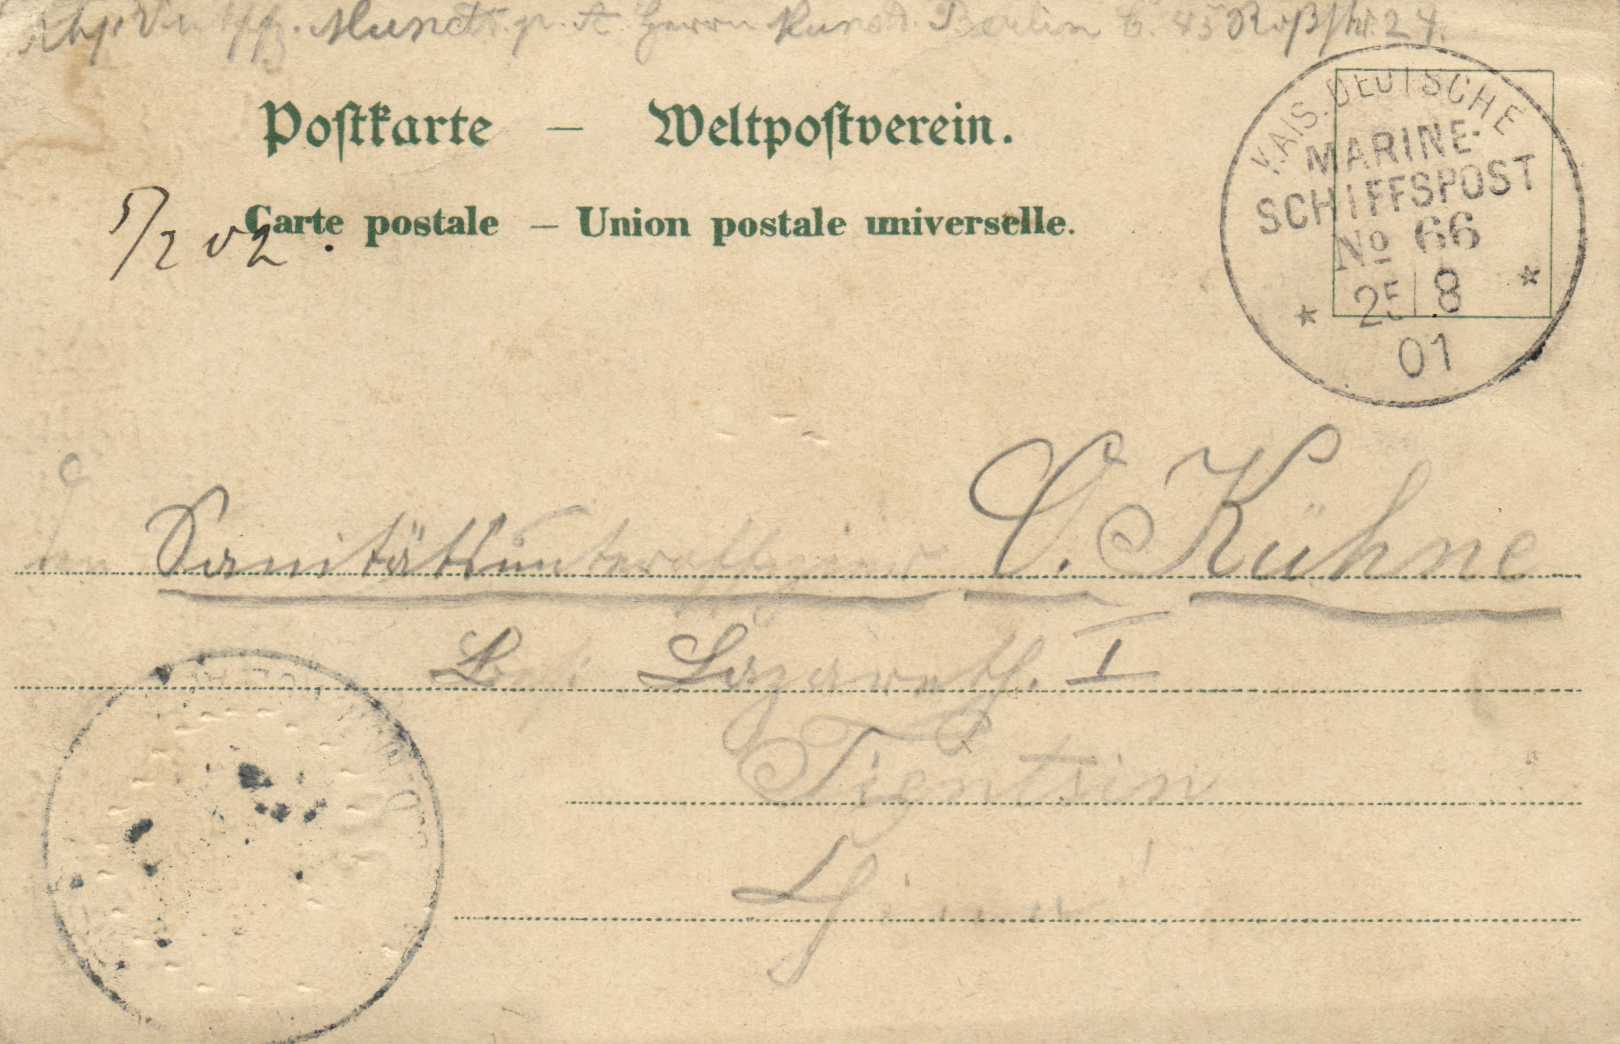 Munck p. A. Herrn Kunst. Berlin C. 45 Roßstr. 24.
Postkarte — Weltpostverein.
Carte postale — Union postale universelle.
5/2 02.
KAIS. DEUTSCHE
MARINE-
SCHIFFSPOST
No 66
25/8
01
Sanitätsunteroffizier O. Kühne
Lazareth. I
Tientsin
China